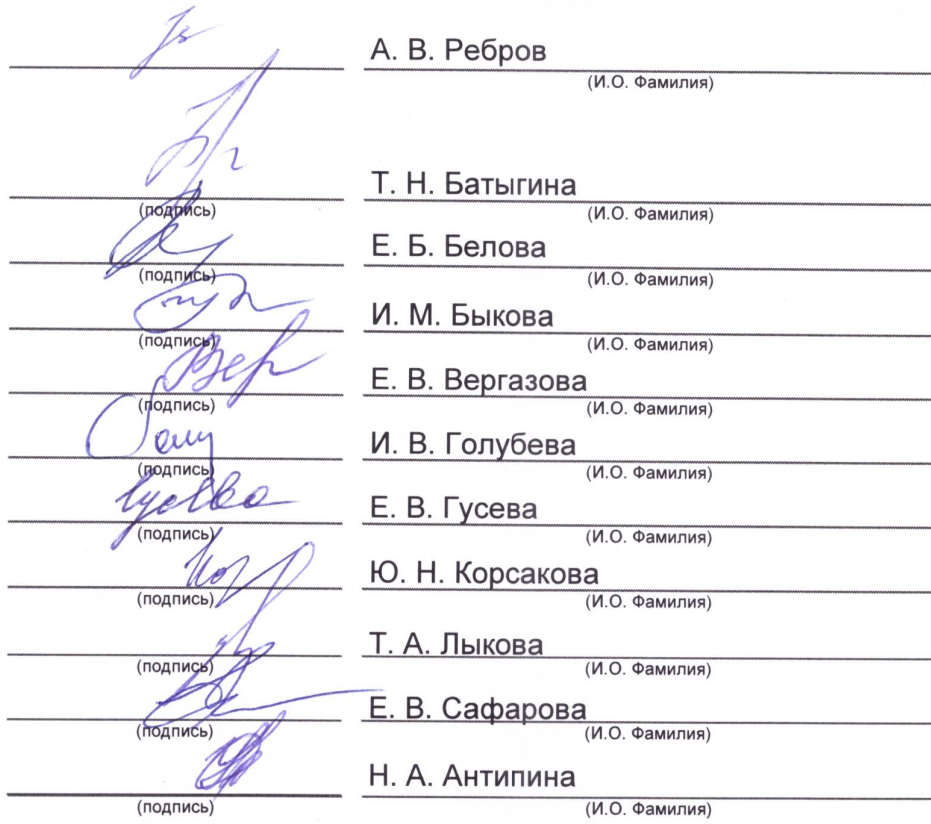 А. В. Ребров
(И.О. Фамилия)
Т. Н. Батыгина
(подпись) (И.О. Фамилия)
Е. Б. Белова
(подпись) (И.О. Фамилия)
И. М. Быкова
(подпись) (И.О. Фамилия)
Вер Е. В. Вергазова
(подпись) (И.О. Фамилия)
И. В. Голубева
(подпись) (И.О. Фамилия)
Гусева Е. В. Гусева
(подпись) (И.О. Фамилия)
Ю. Н. Корсакова
(подпись) (И.О. Фамилия)
Т. А. Лыкова
(подпись) (И.О. Фамилия)
Е. В. Сафарова
(подпись) (И.О. Фамилия)
Н. А. Антипина
(подпись) (И.О. Фамилия)